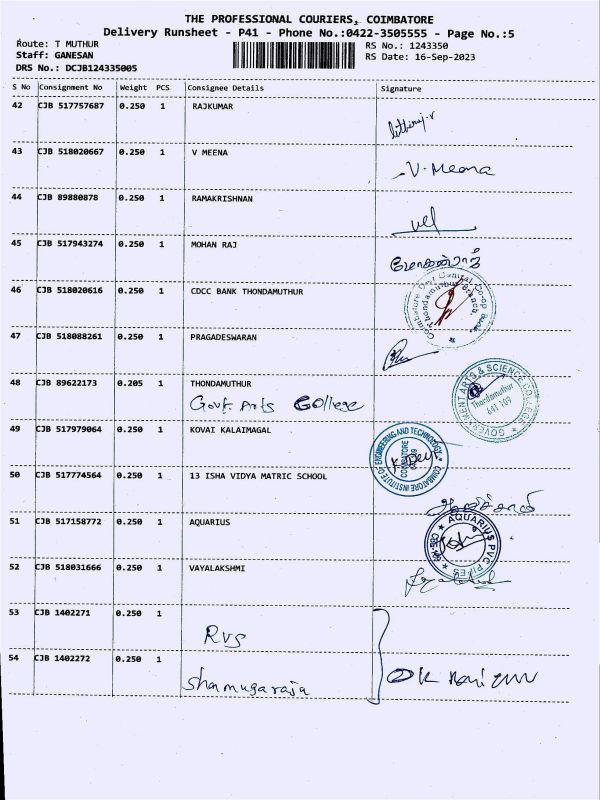 THE PROFESSIONAL COURIERS, COIMBATORE
Delivery Runsheet - P41 - Phone No.:0422-3505555 - Page No.:5
Route: T MUTHUR
RS No.: 1243350
Staff: GANESAN
RS Date: 16-Sep-2023
DRS No.: DCJB124335005
S No Consignment No Weight PCS Consignee Details Signature
42 CJB 517757687 0.250 1 RAJKUMAR
43 CJB 518020667 0.250 1 V MEENA
V. Meena
44 CJB 89880878 0.250 1 RAMAKRISHNAN
45 CJB 517943274 0.250 1 MOHAN RAJ
மோகன்ராஜ்
46 CJB 518020616 0.250 1 CDCC BANK THONDAMUTHUR
47 CJB 518088261 0.250 1 PRAGADESWARAN
48 CJB 89622173 0.205 1 THONDAMUTHUR
Govt. Arts College
GOVERNMENT ARTS & SCIENCE COLLEGE
Thondamuthur
641 109
49 CJB 517979064 0.250 1 KOVAI KALAIMAGAL
COIMBATORE INSTITUTE OF ENGINEERING AND TECHNOLOGY
50 CJB 517774564 0.250 1 13 ISHA VIDYA MATRIC SCHOOL
51 CJB 517158772 0.250 1 AQUARIUS
AQUARIUS PVC PIPES
52 CJB 518031666 0.250 1 VAYALAKSHMI
53 CJB 1402271 0.250 1
RVS
54 CJB 1402272 0.250 1
Shanmugaraja